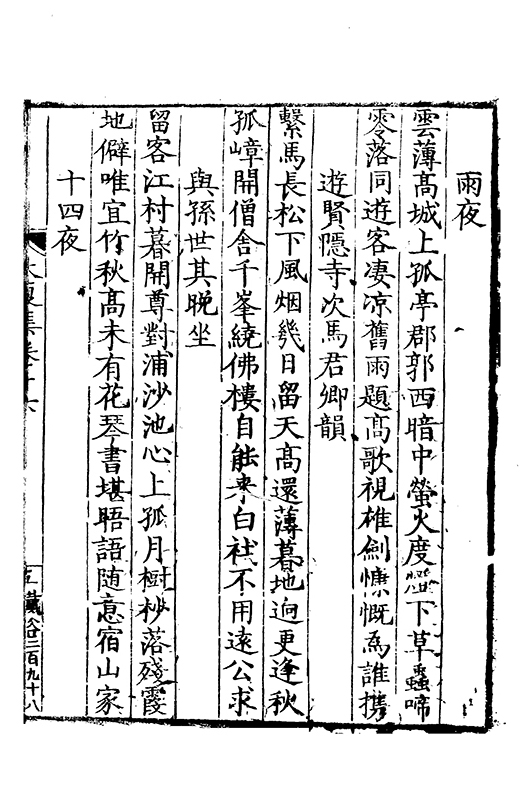 雨夜
雲薄高城上孤亭郡郭西暗中螢火度下草蟲啼
零落同遊客凄凉舊雨題高歌視雄劍慷慨爲誰携
遊賢隱寺次馬君卿韻
繫馬長松下風烟幾日留天高還薄暮地逈更逢秋
孤嶂開僧舎千峯繞佛樓自能來白社不用遠公求
與孫世其晚坐
留客江村暮開尊對浦沙池心上孤月樹杪落殘霞
地僻唯宜竹秋高未有花琴書堪晤語随意宿山家
十四夜
集卷十六
藏谷二百九十八